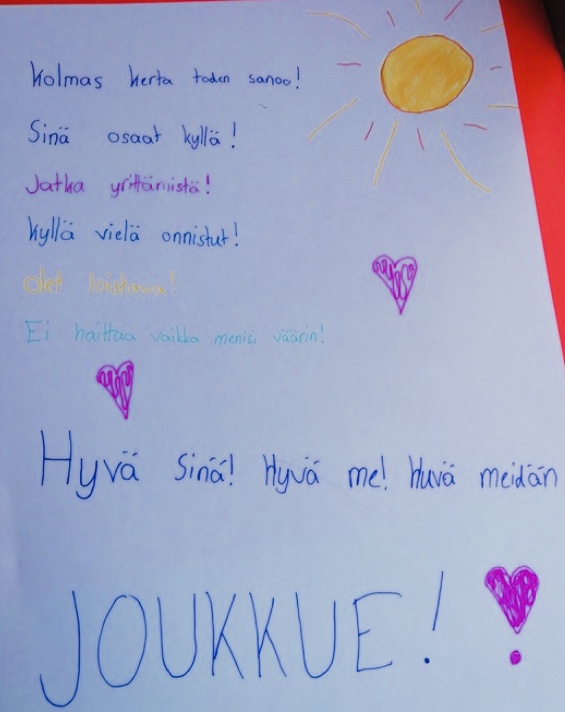 Kolmas kerta toden sanoo!
Sinä osaat kyllä!
Jatka yrittämistä!
Kyllä vielä onnistut!
Olet loistava!
Ei haittaa vaikka menisi väärin!
Hyvä Sinä! Hyvä me! Huvä meidän
JOUKKUE!